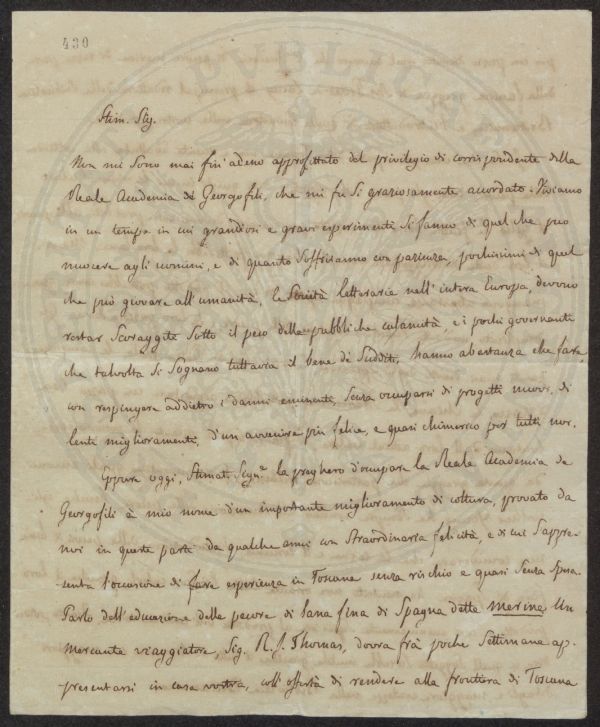 430
Stim. Sig.
Non mi sono mai fin'adeno approfittato del privilegio di corrispondente della
Reale Academia de Georgofili, che mi fu si graziosamente accordato. Viviamo
in un tempo in cui grandiosi e gravi esperimenti si fanno di quel che può
nuocere agli uomini, e di quanto soffriranno con pazienza, pochissimi di quel
che può giovare all'umanità, le Società letterarie nell'intera Europa, devono
restar scoraggite sotto il peso delle pubbliche calamità, e i pochi governanti
che talvolta si sognano tuttavia il bene di sudditi, hanno abastanza che fare,
con respingere addietro i danni eminenti, senza occuparsi di progetti nuovi, di
lenti miglioramenti, d'un avvenire più felice, e quasi chimerico per tutti noi.
Eppure oggi, Stimati Sign.ri la pregherò d'occupare la Reale Academia de
Georgofili à mio nome d'un importante miglioramento di coltura, provato da
noi in queste parti da qualche anni con straordinaria felicità, e di cui s'appre-
senta l'occasione di fare esperienza in Toscana senza rischio e quasi senza spesa.
Parlo dell'educazione delle pecore di lana fina di Spagna dette merine. Un
mercante viaggiatore, Sig. R. J. Thomas, dovra frà poche settimane ap-
presentarsi in casa vostra, coll'offertà di rendere alla frontiera di Toscana